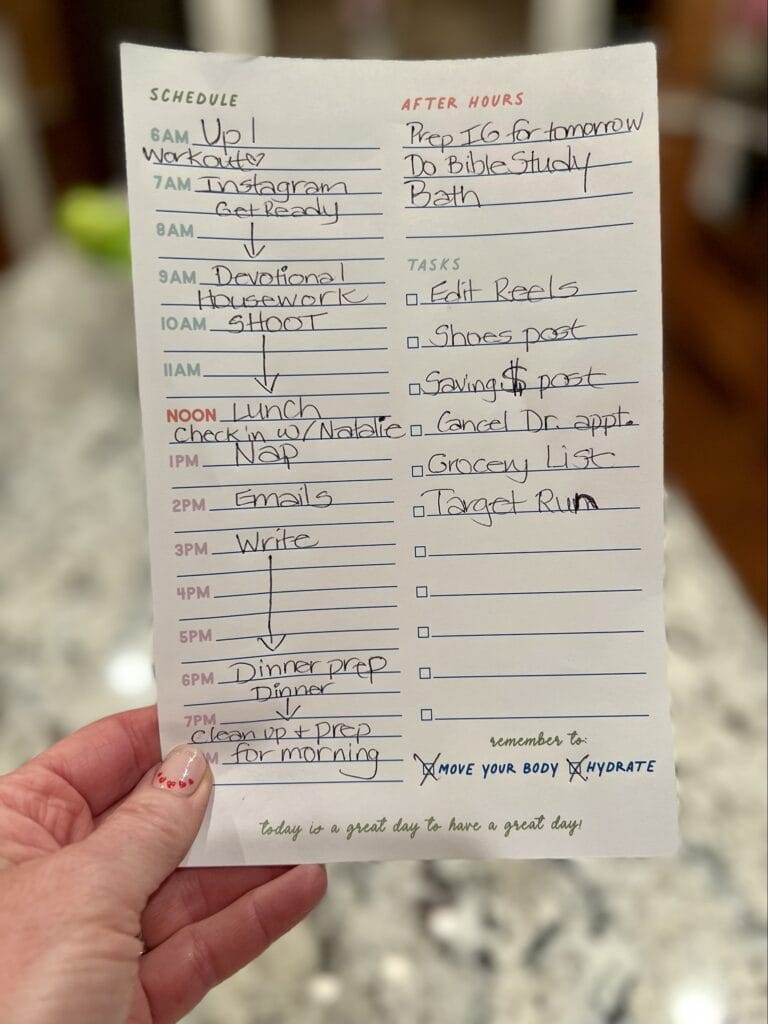 SCHEDULE
6AM Up!
Workout♡
7AM Instagram
Get Ready
8AM
9AM Devotional
Housework
10AM SHOOT
11AM
NOON Lunch
Check in w/ Natalie
1PM Nap
2PM Emails
3PM Write
4PM
5PM
6PM Dinner prep
Dinner
7PM
clean up + prep
M for morning
AFTER HOURS
Prep IG for tomorrow
Do Bible Study
Bath
TASKS
Edit Reels
Shoes post
Saving $ post
Cancel Dr. appt.
Grocery List
Target Run
remember to:
MOVE YOUR BODY HYDRATE
today is a great day to have a great day!